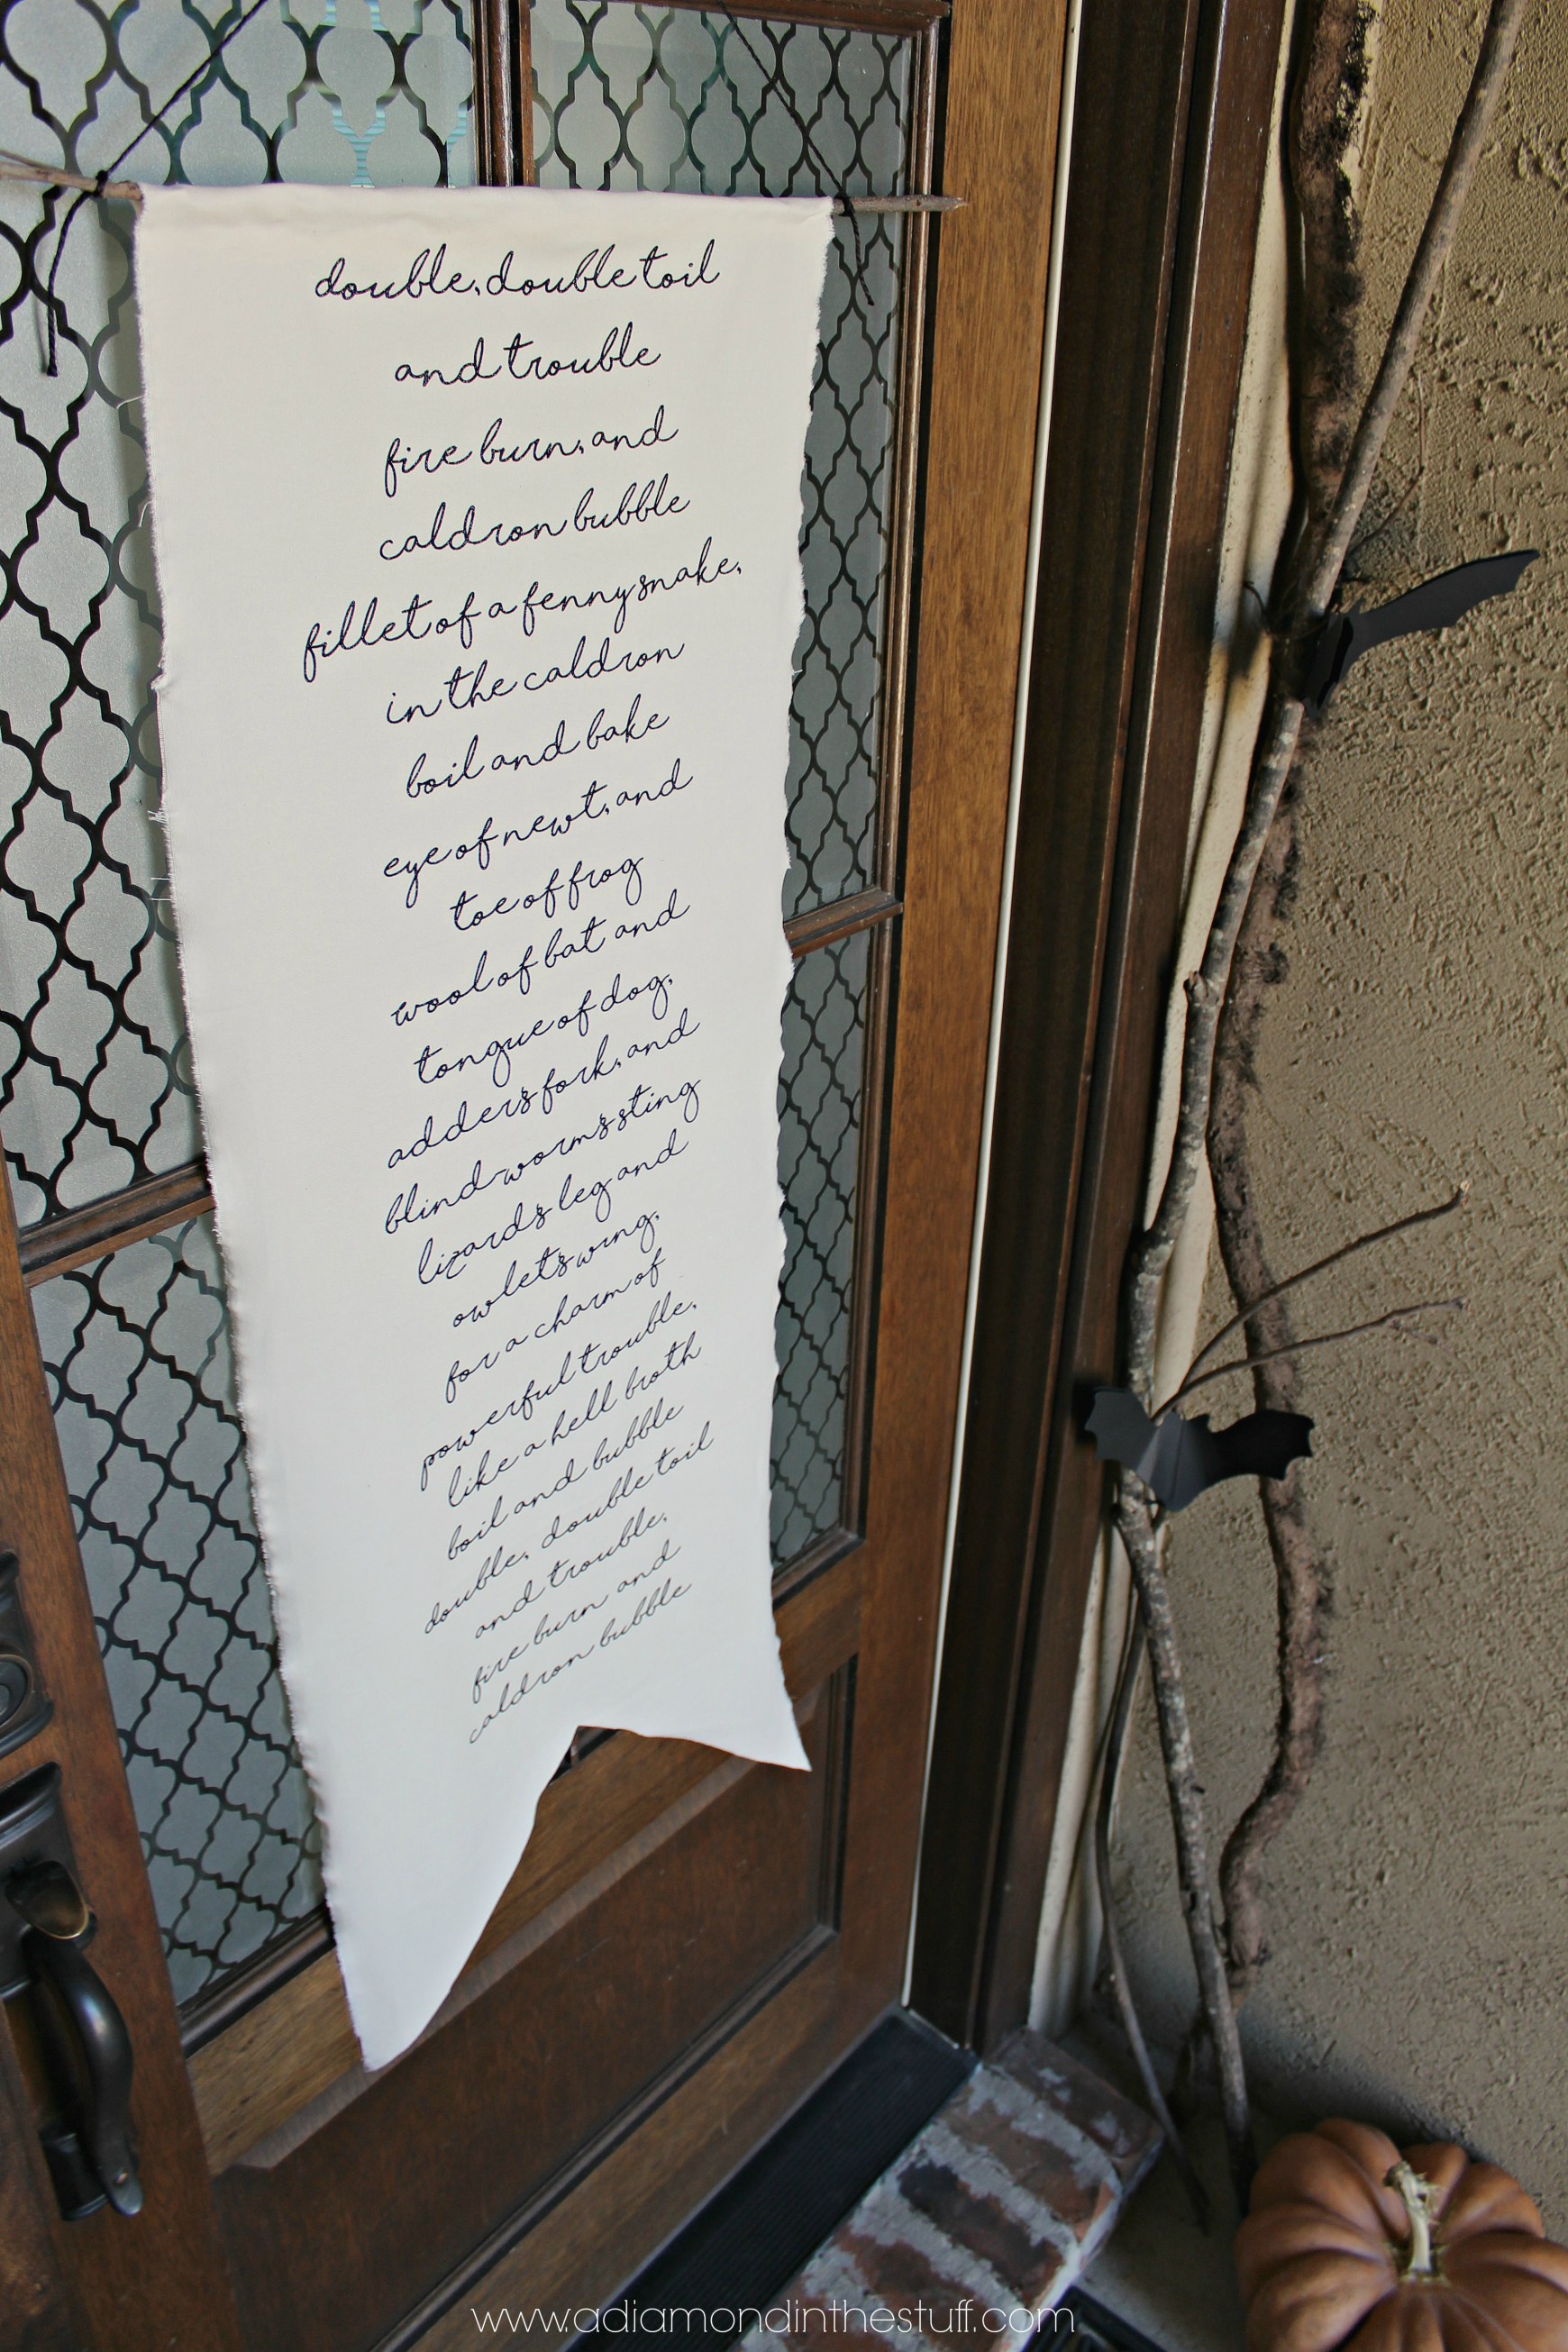 double, double toil
and trouble
fire burn, and
caldron bubble
fillet of a fenny snake,
in the caldron
boil and bake
eye of newt, and
toe of frog
wool of bat and
tongue of dog,
adders fork, and
blind-worms sting
lizards leg and
owlets wing,
for a charm of
powerful trouble,
like a hell broth
boil and bubble
double, double toil
and trouble,
fire burn and
caldron bubble
www.adiamondinthestuff.com